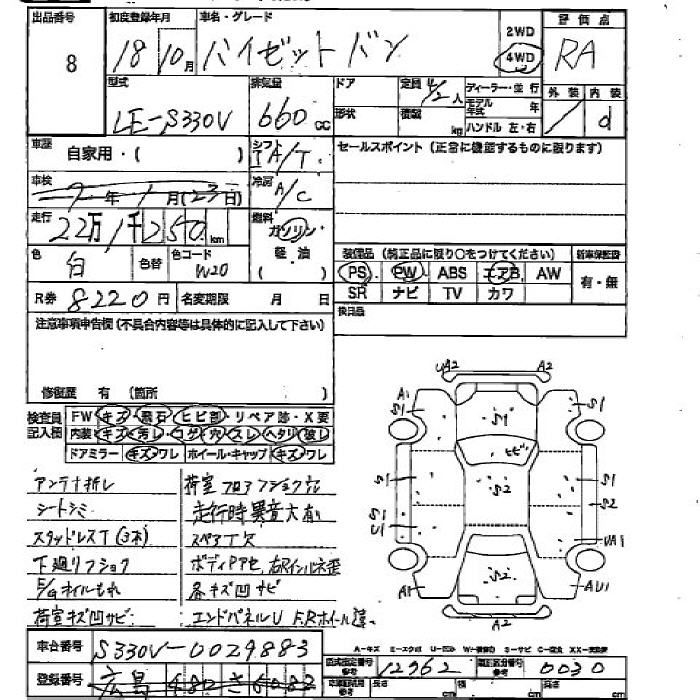 出品番号 初度登録年月 車名・グレード 2WD 4WD 評価点
8 18 10月 ハイゼットバン RA
型式 排気量 ドア 定員 4/2人 ディーラー・並行 外装 内装
LE-S330V 660cc 形状 積載 kg モデル年式 年 ハンドル 左・右 / d
車歴 自家用・( ) シフト A/T セールスポイント (正常に機能するものに限ります)
車検 年 1月(23日) 冷房 A/C
走行 22万1千250km 燃料 ガソリン
色 白 色替 色コード W20 軽・油 ( )
装備品 (純正品に限り○をつけてください) 新車保証書
PS PW ABS エアB AW 有・無
SR ナビ TV カワ
R券 8220円 名変期限 月 日
後日品
注意事項申告欄(不具合内容等は具体的に記入して下さい)
修復歴 有 (箇所 )
検査員記入欄 FW キズ・飛石・ヒビ割・リペア跡・X要
内装・キズ・汚レ・コゲ・穴・スレ・ヘタリ・破レ
ドアミラー キズ・ワレ ホイール・キャップ キズ・ワレ
アンテナ折レ 荷室フロアフショク穴
シートシミ 走行時異音大有
スタッドレスT(3本) スペアT欠
下廻りフショク
E/gオイルもれ 各キズ凹サビ
荷室キズ凹サビ エンドパネルU F.Rホイール違
UA2 A2
A1 S1 S1 S1
ヒビ
S1 S2 S1
S1 S2
U1 UA1
A1 S2 AU1
A2
車台番号 S330V-0029883
A-キズ U-凹み S-サビ
登録番号 広島 480 さ 6083
型式指定番号 12962 類別区分番号 0030
長さ cm cm 高さ cm